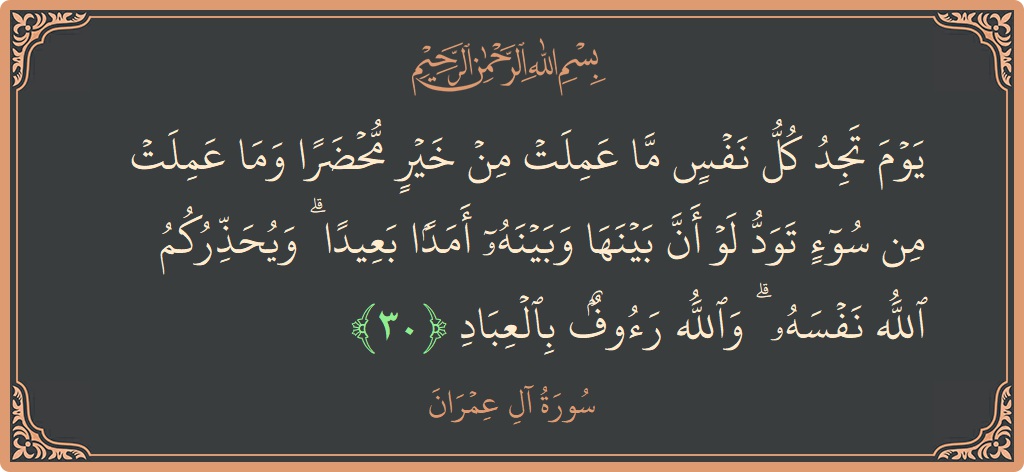 بِسْمِ اللهِ الرَّحْمٰنِ الرَّحِيْمِ
يَوۡمَ تَجِدُ كُلُّ نَفۡسٖ مَّا عَمِلَتۡ مِنۡ خَيۡرٖ مُّحۡضَرٗا وَمَا عَمِلَتۡ
مِن سُوٓءٖ تَوَدُّ لَوۡ أَنَّ بَيۡنَهَا وَبَيۡنَهُۥٓ أَمَدَۢا بَعِيدٗاۗ وَيُحَذِّرُكُمُ
ٱللَّهُ نَفۡسَهُۥۗ وَٱللَّهُ رَءُوفُۢ بِٱلۡعِبَادِ ﴿٣٠﴾
سُورَةُ آلِ عِمۡرَانَ